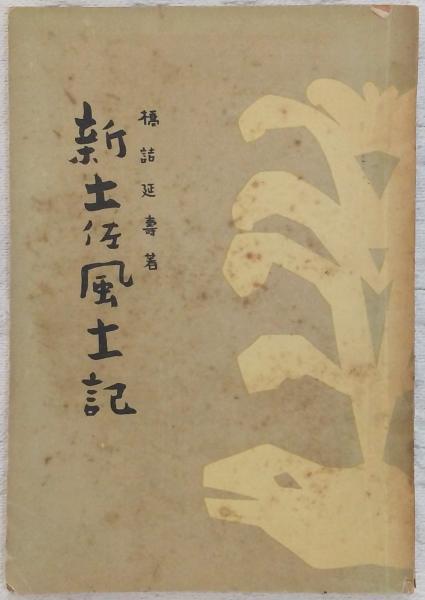 橋詰延壽著
新土佐風土記